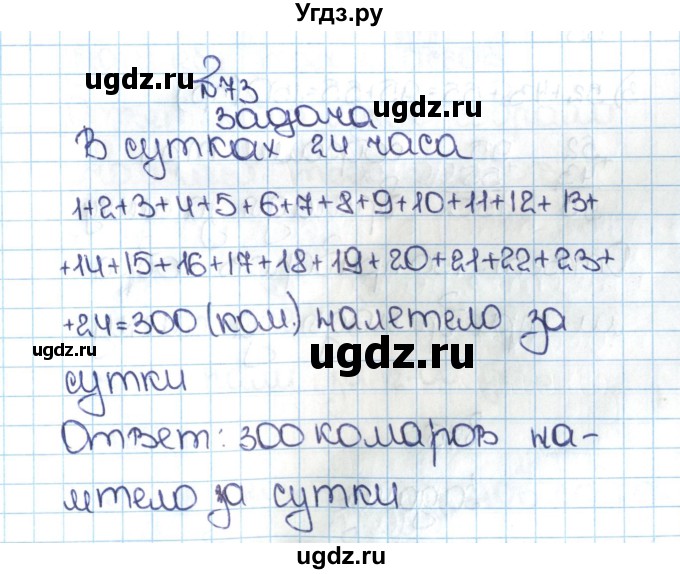 Угдз.ру
ugdz.ru
№73
ugdz.ru
задача
В сутках 24 часа
1+2+3+4+5+6+7+8+9+10+11+12+13+
+14+15+16+17+18+19+20+21+22+23+
+24=300 (ком.) налетело за
ugdz.ru
ugdz.ru
сутки
Ответ: 300 комаров на-
летело за сутки
ugdz.ru
ugdz.ru